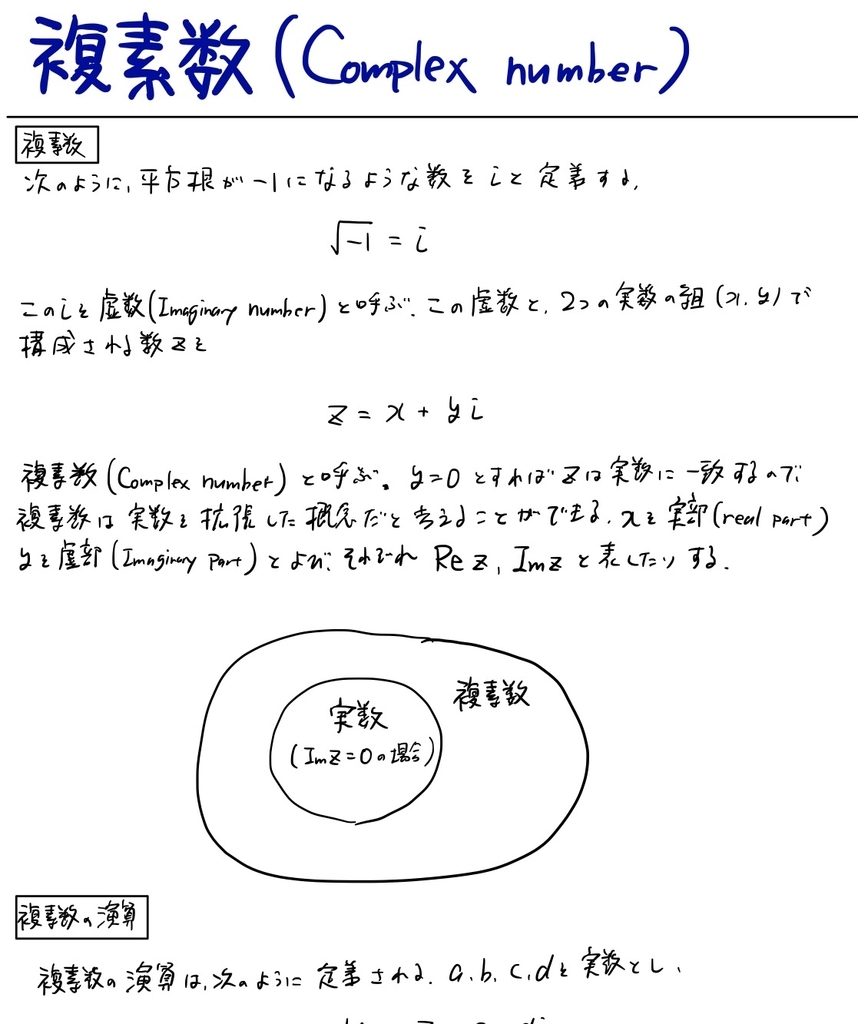 複素数(Complex number)
複素数
次のように,平方根が-1になるような数をiと定義する,
√-1 = i
このiを虚数(Imaginary number)と呼ぶ.この虚数と,2つの実数の組(x,y)で
構成される数zを
z = x + yi
複素数(Complex number)と呼ぶ。y=0とすればzは実数に一致するので,
複素数は実数を拡張した概念だと考えることができる.xを実部(real part)
yを虚部(Imaginary part)とよび,それぞれRe z, Im zと表したりする.
複素数
実数
(Im z=0の場合)
複素数の演算
複素数の演算は,次のように定義される.a,b,c,dを実数とし,